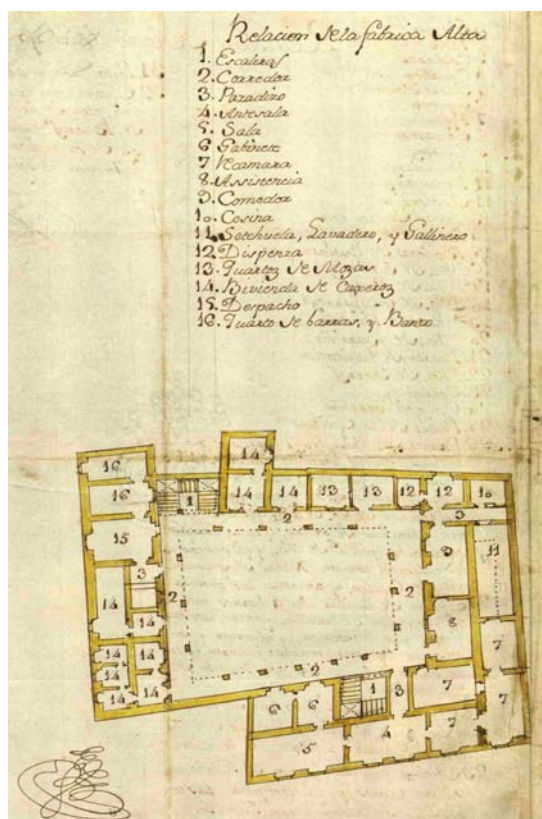 Relacion de la fabrica Alta
1. Escaleras
2. Corredor
3. Pazadizo
4. Antesala
5. Sala
6 Gabinete
7 Recamara
8. Assistencia
9. Comedor
10. Cosina
11. Sotehuela, Lavadero, y Gallinero
12. Dispenza
13. Quartos de Mozas
14. Bivienda de Cajeros
15. Despacho
16. Quarto de barras, y Banco
14
16
16 1 14 14 13 13 12 12 10
2 3
15 9 11
3
14 2 2 8
14
14 14 7
14 2
14 14 6 6 1 3 7 7
5 4 7